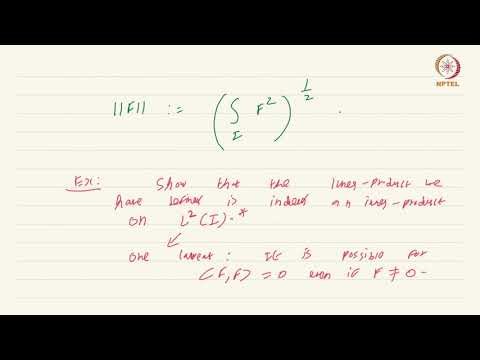 NPTEL
||F|| := ( ∫_I F² )^{1/2} .
Ex: Show that the inner-product we
have defined is indeed an inner-product
on L²(I).*
one caveat: It is possible for
⟨F,F⟩ = 0 even if F ≠ 0 -